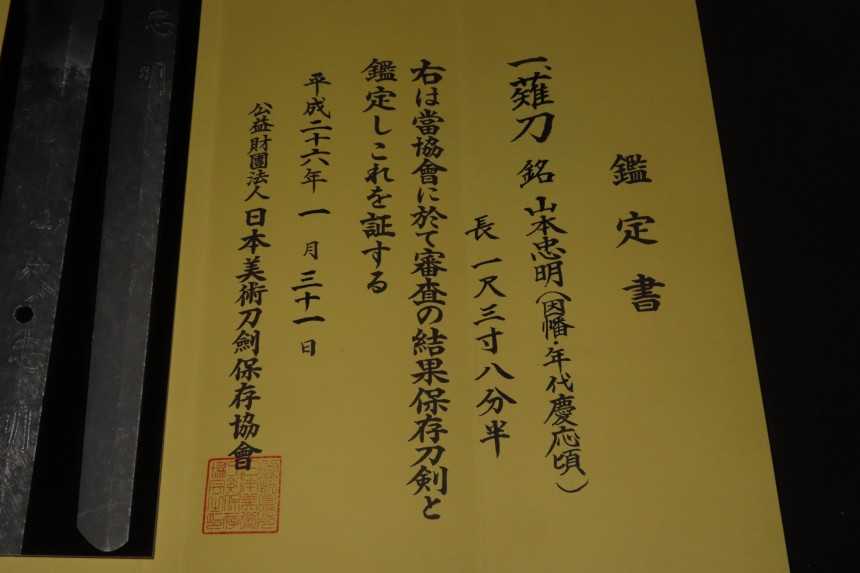 鑑定書
一、薙刀 銘 山本忠明(因幡・年代慶応頃)
長 一尺三寸八分半
右は當協會に於て審査の結果保存刀剣と
鑑定しこれを証する
平成二十六年 一月 三十一日
公益財團法人 日本美術刀劍保存協會
忠明